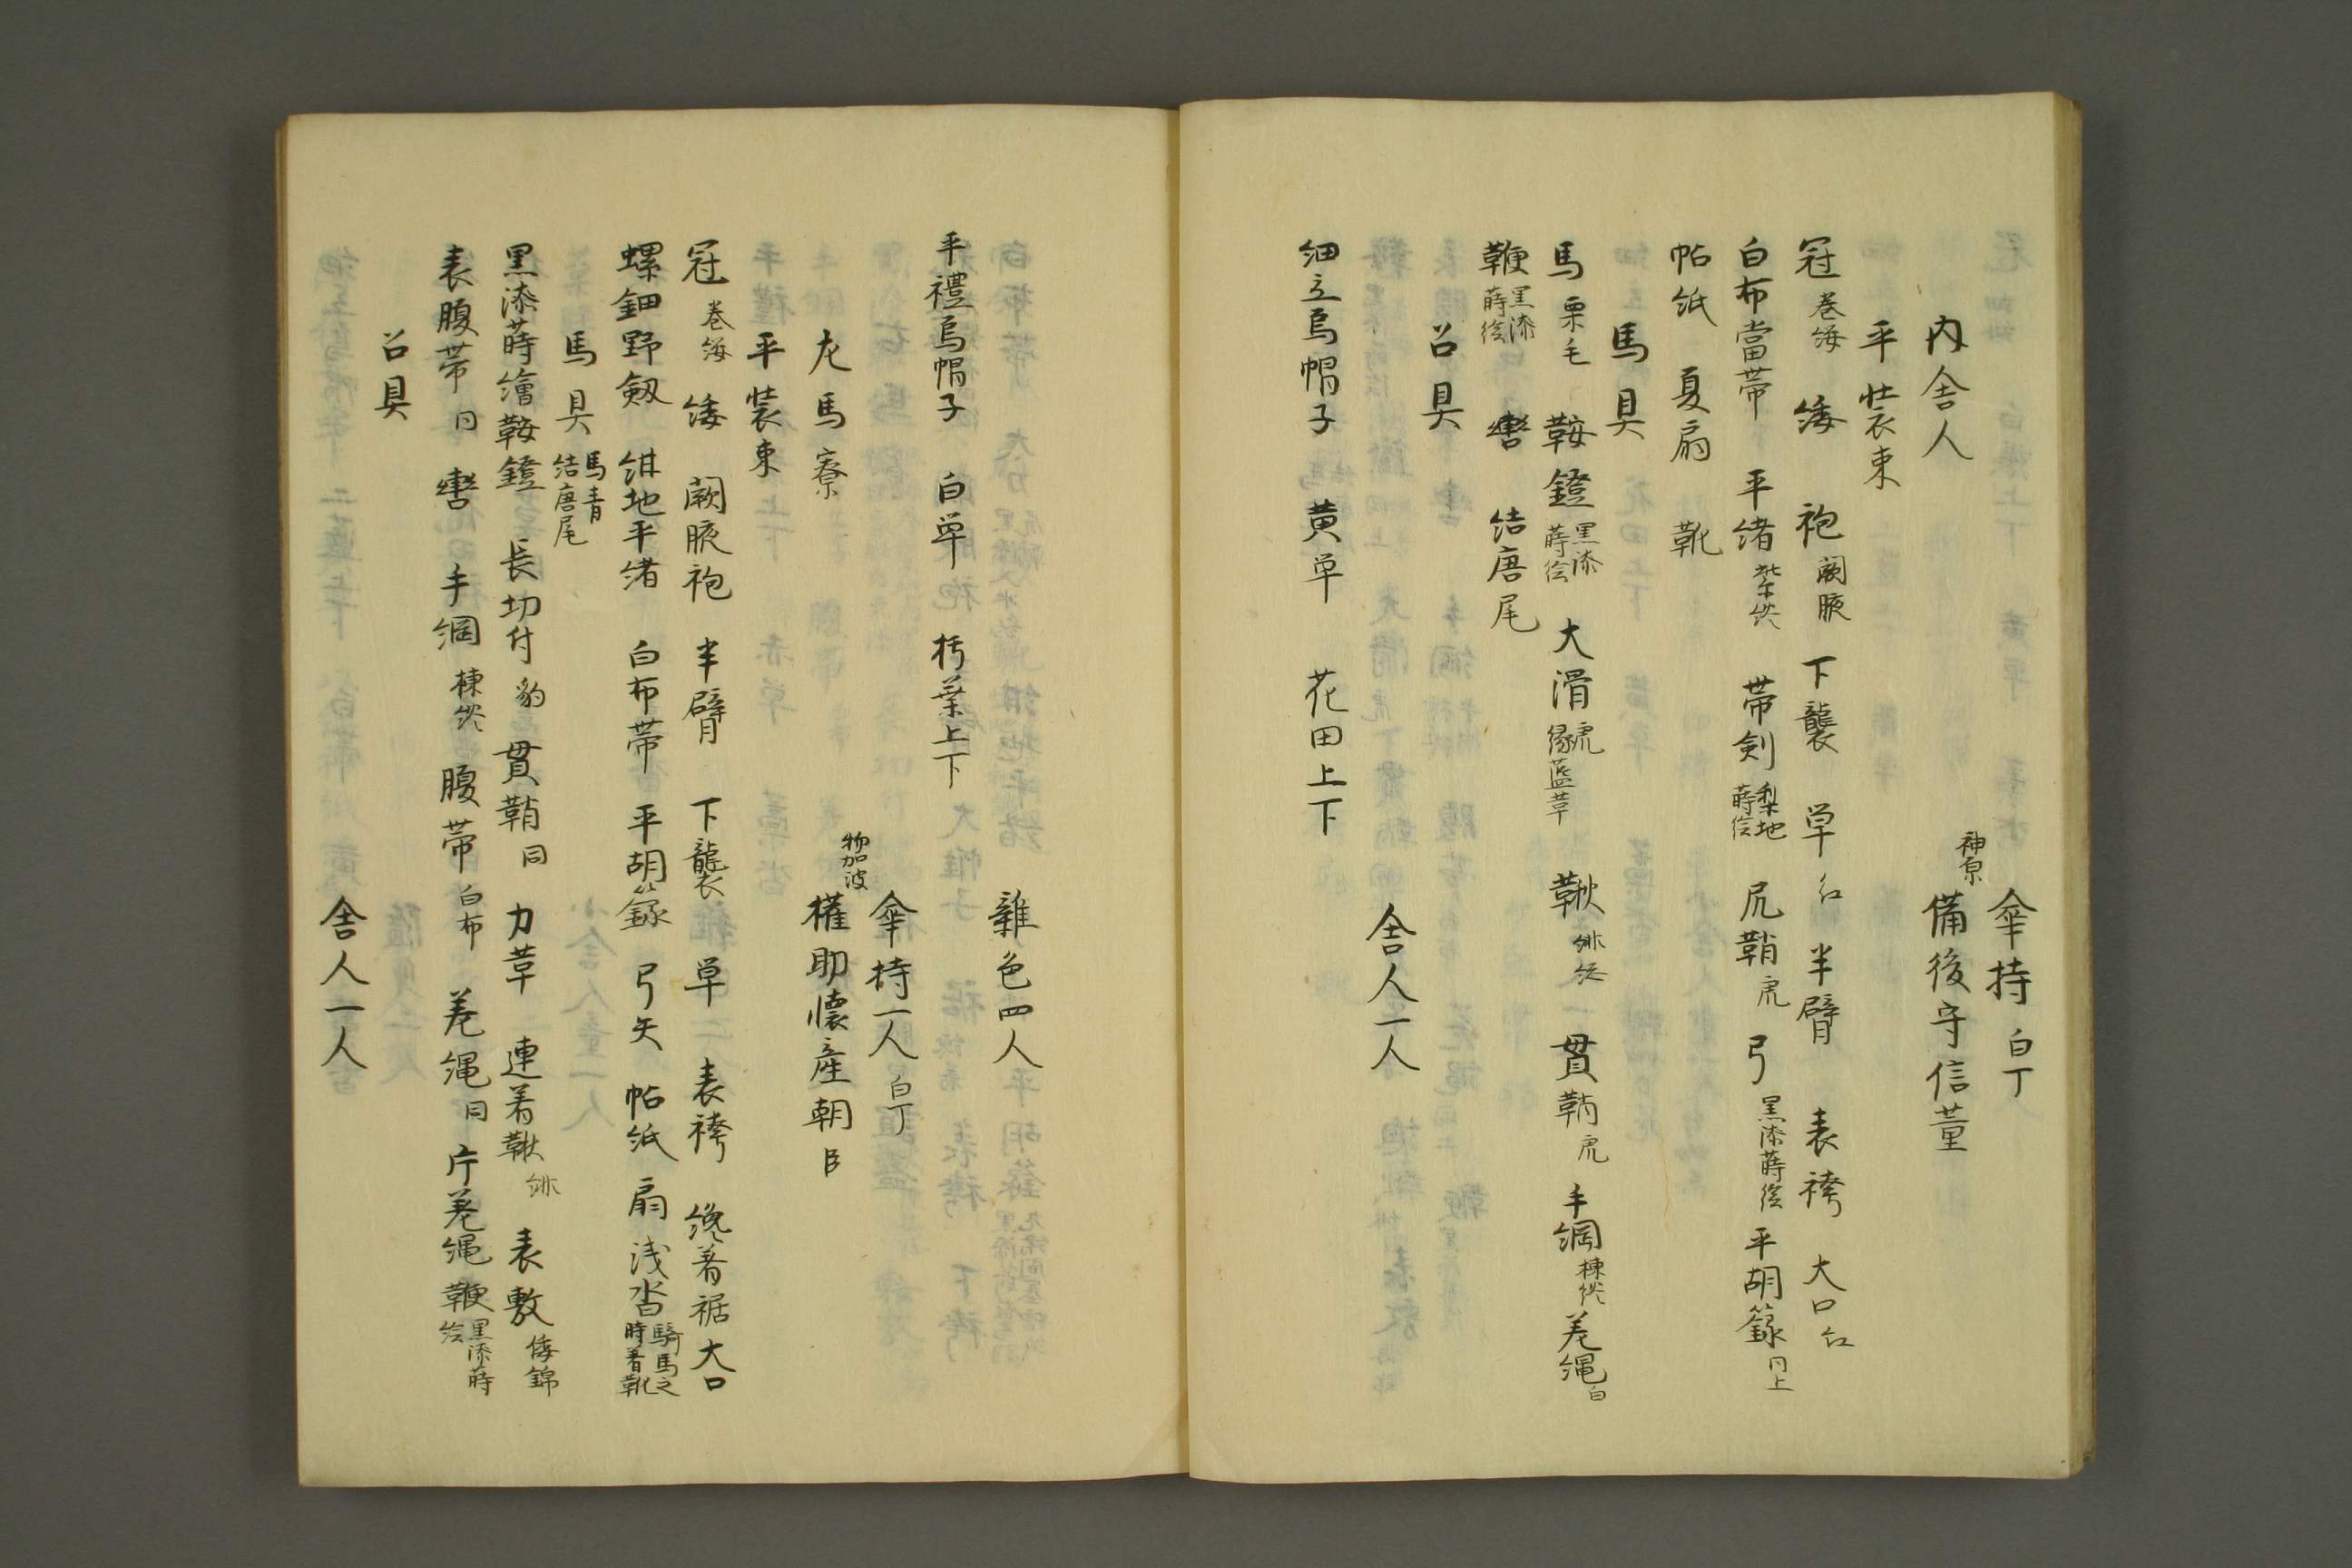 傘持 白丁
内舎人
神原 備後守信董
平装束
冠 巻纓 緌 袍 闕腋 下襲 単 紅 半臂 表袴 大口 紅
白布當帯 平緒 紫絥 帯剣 梨地蒔絵 尻鞘 虎 弓 黒漆蒔絵 平胡籙 同上
帖紙 夏扇 靴
馬具
馬 栗毛 鞍鐙 黒漆蒔絵 大滑 虎縁藍革 鞦 緋 貫鞘 虎 手綱 楝 差縄 白
鞭 黒漆蒔絵 轡 結唐尾
召具
舎人一人
細立烏帽子 黄単 花田上下
雜色四人
平禮烏帽子 白単 朽葉上下
傘持一人 白丁
左馬寮
物加波 權助懐産朝臣
平装束
冠 巻纓 緌 闕腋袍 半臂 下襲 単 表袴 纔著裾大口
螺鈿野剱 紺地平緒 白布帯 平胡籙 弓矢 帖紙 扇 浅沓 騎馬之時着靴
馬具 馬青結唐尾
黒漆蒔繪鞍鐙 長切付 豹 貫鞘 同 力革 連着鞦 緋 表敷 倭錦
表腹帯 同 轡 手綱 楝 腹帯 白布 差縄 同 片差縄 鞭 黒漆蒔絵
召具
舎人一人